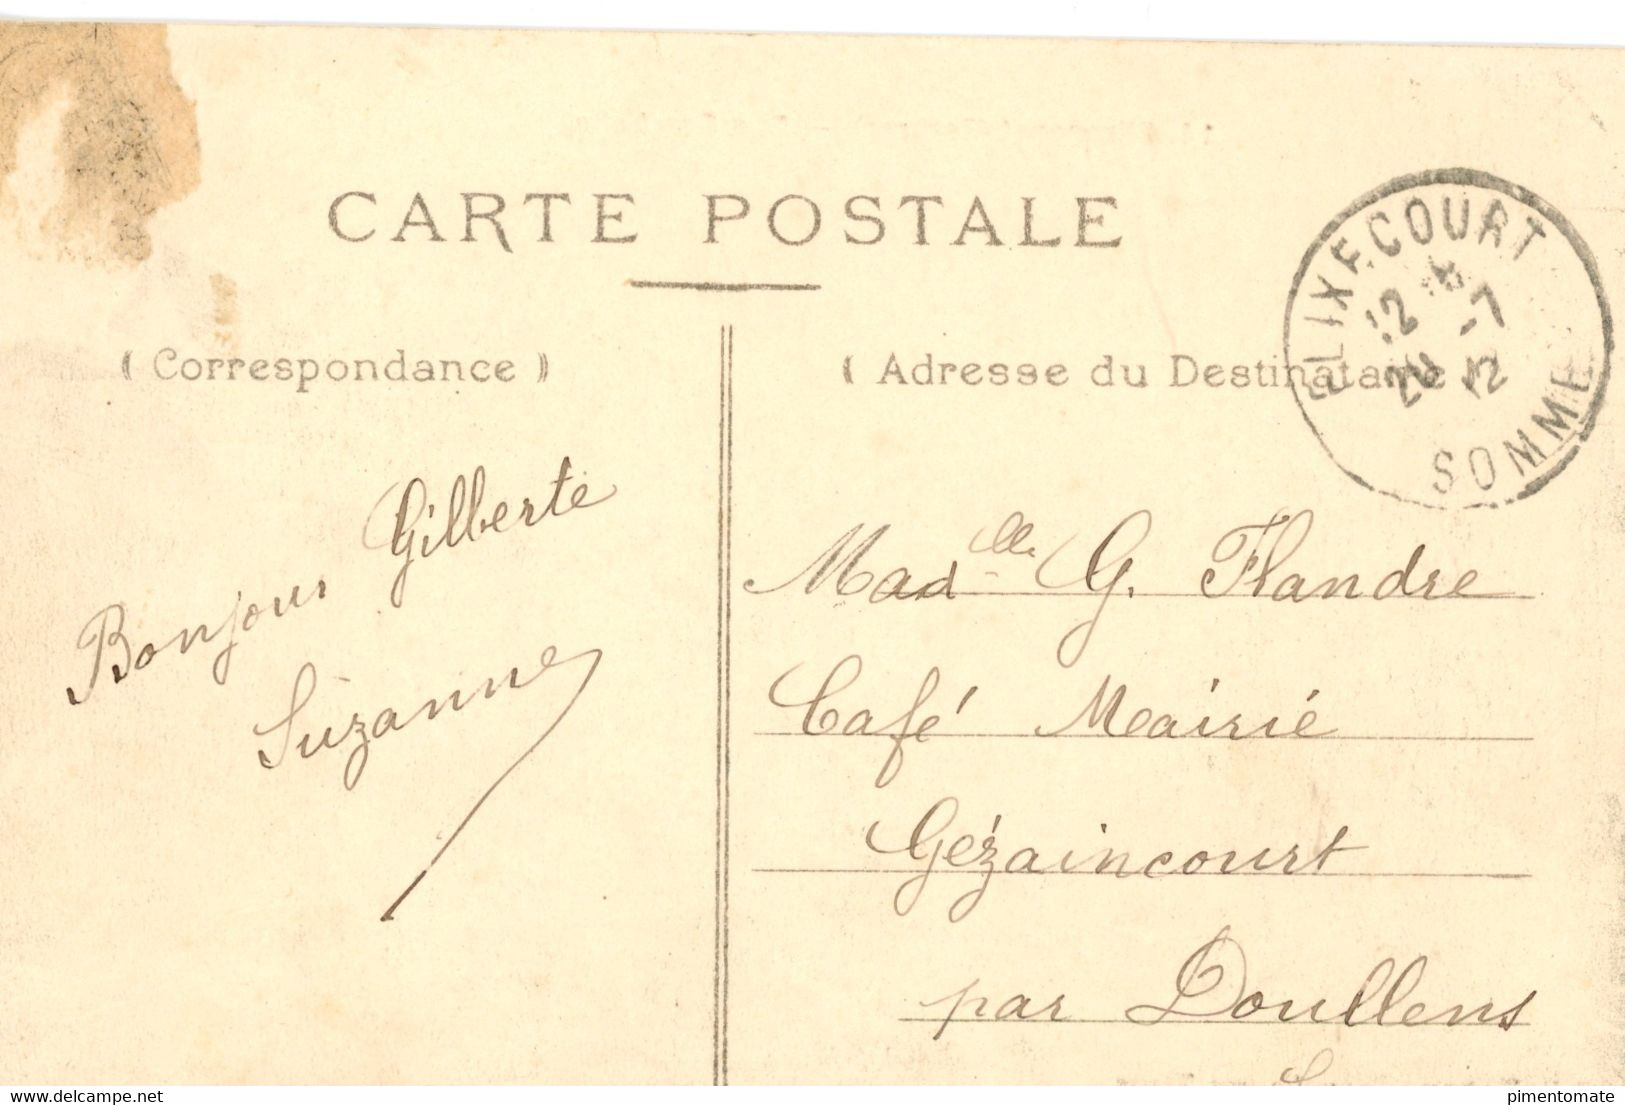 CARTE POSTALE
( Correspondance )
( Adresse du Destinataire
FLIXECOURT
12
26 -7
12
SOMME
Bonjour Gilberte
Suzanne
Madlle G. Flandre
Café Mairie
Gézaincourt
par Doullens
delcampe.net
pimentomate